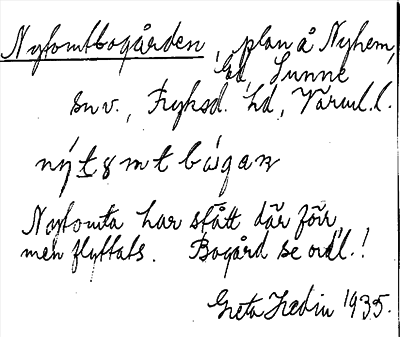 Nytomtbogården, plan å Nyhem,
Gd, Sunne
sn v., Fryksd. hd, Värml. l.
nýtomt bògan
Nytomta har stått där förr,
men flyttats. Bogård se ordl.!
Greta Hedin 1935.